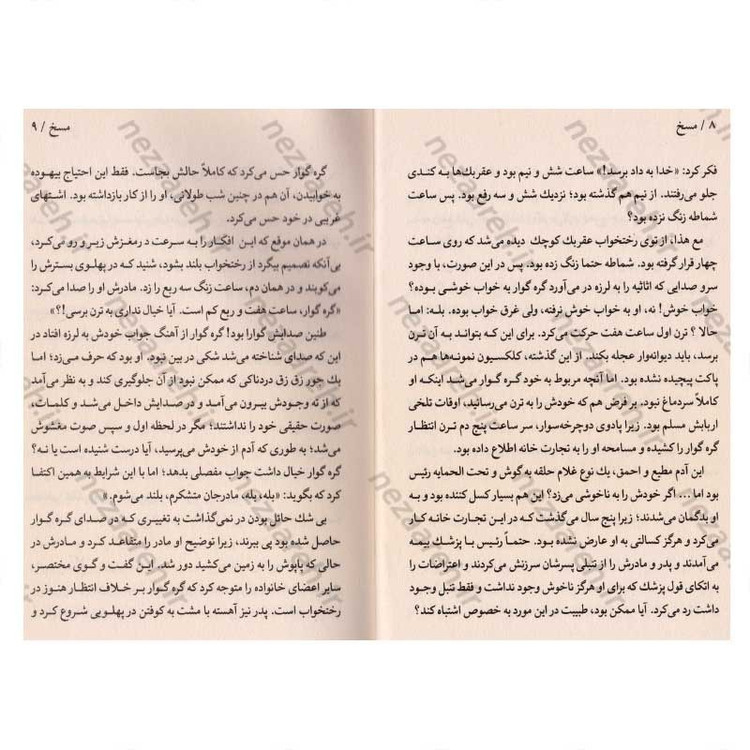 ۸ / مسخ
فکر کرد: «خدا به داد برسد!» ساعت شش و نیم بود و عقربك‌ها به کندی
جلو می‌رفتند. از نیم هم گذشته بود؛ نزدیك شش و سه رفع بود. پس ساعت
شماطه زنگ نزده بود؟
مع هذا، از توی رختخواب عقربك کوچك دیده می‌شد که روی ساعت
چهار قرار گرفته بود. شماطه حتما زنگ زده بود. پس در این صورت، با وجود
سرو صدایی که اثاثیه را به لرزه در می‌آورد گره گوار به خواب خوشی بوده؟
خواب خوش! نه، او به خواب خوش نرفته، ولی غرق خواب بوده. بله: اما
حالا ؟ ترن اول ساعت هفت حرکت می‌کرد. برای این که بتواند به آن ترن
برسد، باید دیوانه‌وار عجله بکند. از این گذشته، کلکسیون نمونه‌ها هم در
پاکت پیچیده نشده بود. اما آنچه مربوط به خود گره گوار می‌شد اینکه او
کاملاً سردماغ نبود. بر فرض هم که خودش را به ترن می‌رسانید، اوقات تلخی
اربابش مسلم بود. زیرا پادوی دوچرخه‌سوار، سر ساعت پنج دم ترن انتظار
گره گوار را کشیده و مسامحه او را به تجارت خانه اطلاع داده بود.
این آدم مطیع و احمق، یك نوع غلام حلقه به گوش و تحت الحمایه رئیس
بود اما ... اگر خودش را به ناخوشی می‌زد؟ این هم بسیار کسل کننده بود و به
او بدگمان می‌شدند؛ زیرا پنج سال می‌گذشت که در این تجارت خانه کار
می‌کرد و هرگز کسالتی به او عارض نشده بود. حتماً رئیس با پزشك بیمه
می‌آمدند و پدر و مادرش را از تنبلی پسرشان سرزنش می‌کردند و اعتراضات را
به اتکای قول پزشك که برای او هرگز ناخوش وجود نداشت و فقط تنبل وجود
داشت رد می‌کرد. آیا ممکن بود، طبیبت در این مورد به خصوص اشتباه کند؟
مسخ / ۹
گره گوار حس می‌کرد که کاملاً حالش بجاست. فقط این احتیاج بیهوده
به خوابیدن، آن هم در چنین شب طولانی، او را از کار بازداشته بود. اشتهای
غریبی در خود حس می‌کرد.
در همان موقع که این افکار را به سرعت د رمغزش زیرو رو می‌کرد،
بی‌آنکه تصمیم بیگرد از رختخواب بلند بشود، شنید که در پهلوی بسترش را
می‌کوبند و در همان دم، ساعت زنگ سه ربع را زد. مادرش او را صدا می‌کرد:
«گره گوار، ساعت هفت و ربع کم است. آیا خیال نداری به ترن برسی!؟»
طنین صدایش گوارا بود! گره گوار از آهنگ جواب خودش به لرزه افتاد در
این که صدای شناخته می‌شد شکی در بین نبود. او بود که حرف می‌زد؛ اما
یك جور زق زق دردناکی که ممکن نبود از آن جلوگیری کند و به نظر می‌آمد
که از ته وجودش بیرون می‌آمد و در صدایش داخل می‌شد و کلمات،
صورت حقیقی خود را نداشتند؛ مگر در لحظه اول و سپس صوت مغشوش
می‌شد؛ به طوری که آدم از خودش می‌پرسید، آیا درست شنیده است یا نه؟
گره گوار خیال داشت جواب مفصلی بدهد؛ اما با این شرایط به همین اکتفا
کرد که بگوید: «بله، بله، مادرجان متشکرم، بلند می‌شوم.»
بی شك حائل بودن در نمی‌گذاشت به تغییری که در صدای گره گوار
حاصل شده بود پی ببرند، زیرا توضیح او مادر را متقاعد کرد و مادرش در
حالی که پاپوش را به زمین می‌کشید دور شد. این گفت و گوی مختصر،
سایر اعضای خانواده را متوجه کرد که گره گوار بر خلاف انتظار هنوز در
رختخواب است. پدر نیز آهسته با مشت به کوفتن در پهلویی شروع کرد و
nezaareh.ir